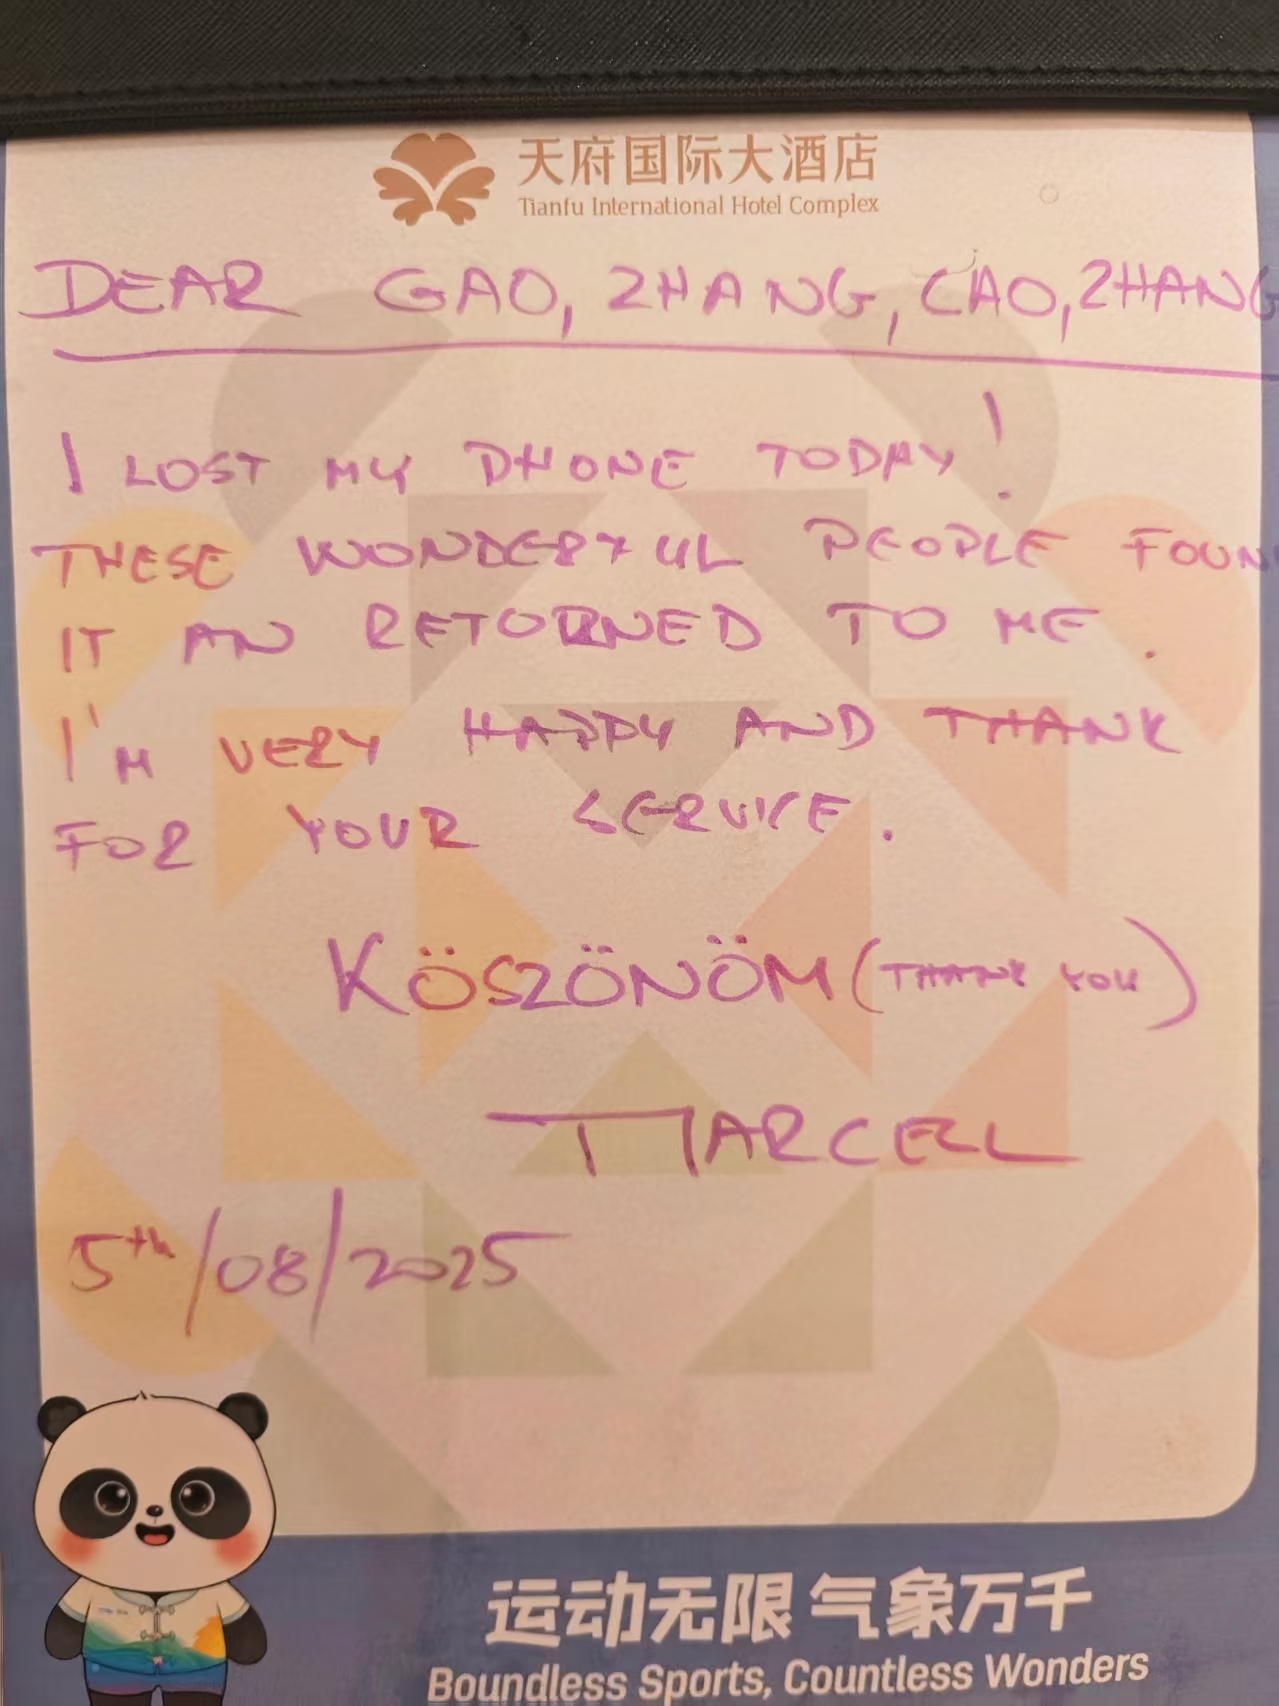 天府国际大酒店
Tianfu International Hotel Complex
DEAR GAO, ZHANG, CAO, ZHANG
I LOST MY PHONE TODAY!
THESE WONDERFUL PEOPLE FOUN
IT AN RETURNED TO ME.
I'M VERY HAPPY AND THANK
FOR YOUR SERVICE.
KÖSZÖNÖM (THANK YOU)
MARCELL
5th/08/2025
运动无限 气象万千
Boundless Sports, Countless Wonders